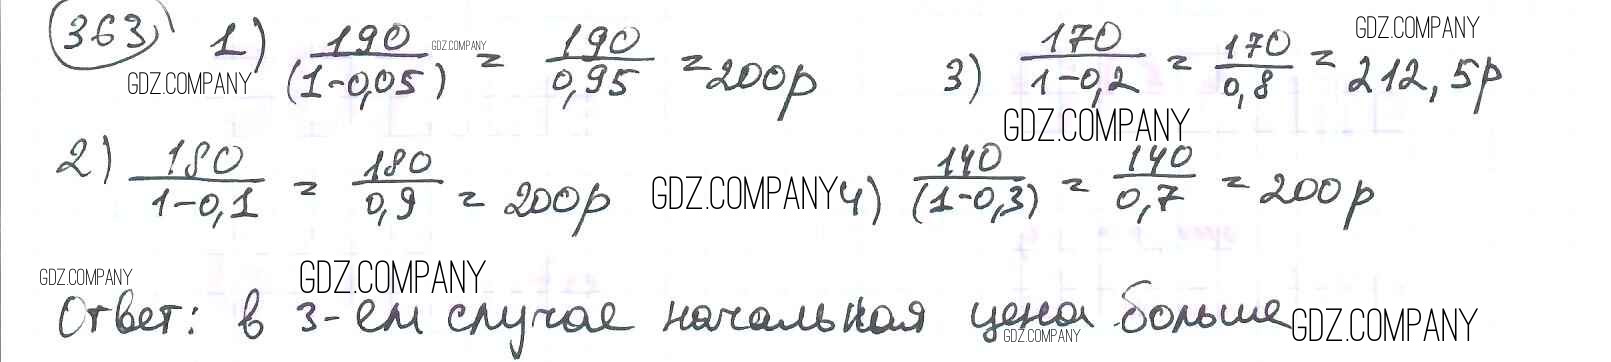 363) 1) 190/(1-0,05) = 190/0,95 = 200р 3) 170/1-0,2 = 170/0,8 = 212,5р
GDZ.COMPANY GDZ.COMPANY GDZ.COMPANY
GDZ.COMPANY
2) 180/1-0,1 = 180/0,9 = 200р GDZ.COMPANY 4) 140/(1-0,3) = 140/0,7 = 200р
GDZ.COMPANY GDZ.COMPANY
Ответ: в 3-ем случае начальная цена больше GDZ.COMPANY
GDZ.COMPANY